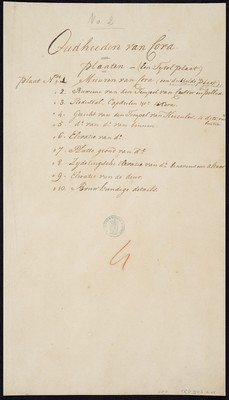 No 2
Oudheden van Cora
Plaaten - (Een Tytel plaat)
Plaat No. 1 Muuren van Cora
" 2. Ruwine van den Tempel van Castor en Pollux
" 3. Pedestal, Capiteelen
" 4. Gezicht van den Tempel van Hercules
" 5. do. van do. van binnen
" 6. Elevatie van do.
" 7. Platte grond van do.
" 8. Zydelingsche Elevatie van do.
" 9. Elevatie van de deur.
" 10. Bouwkundige details.